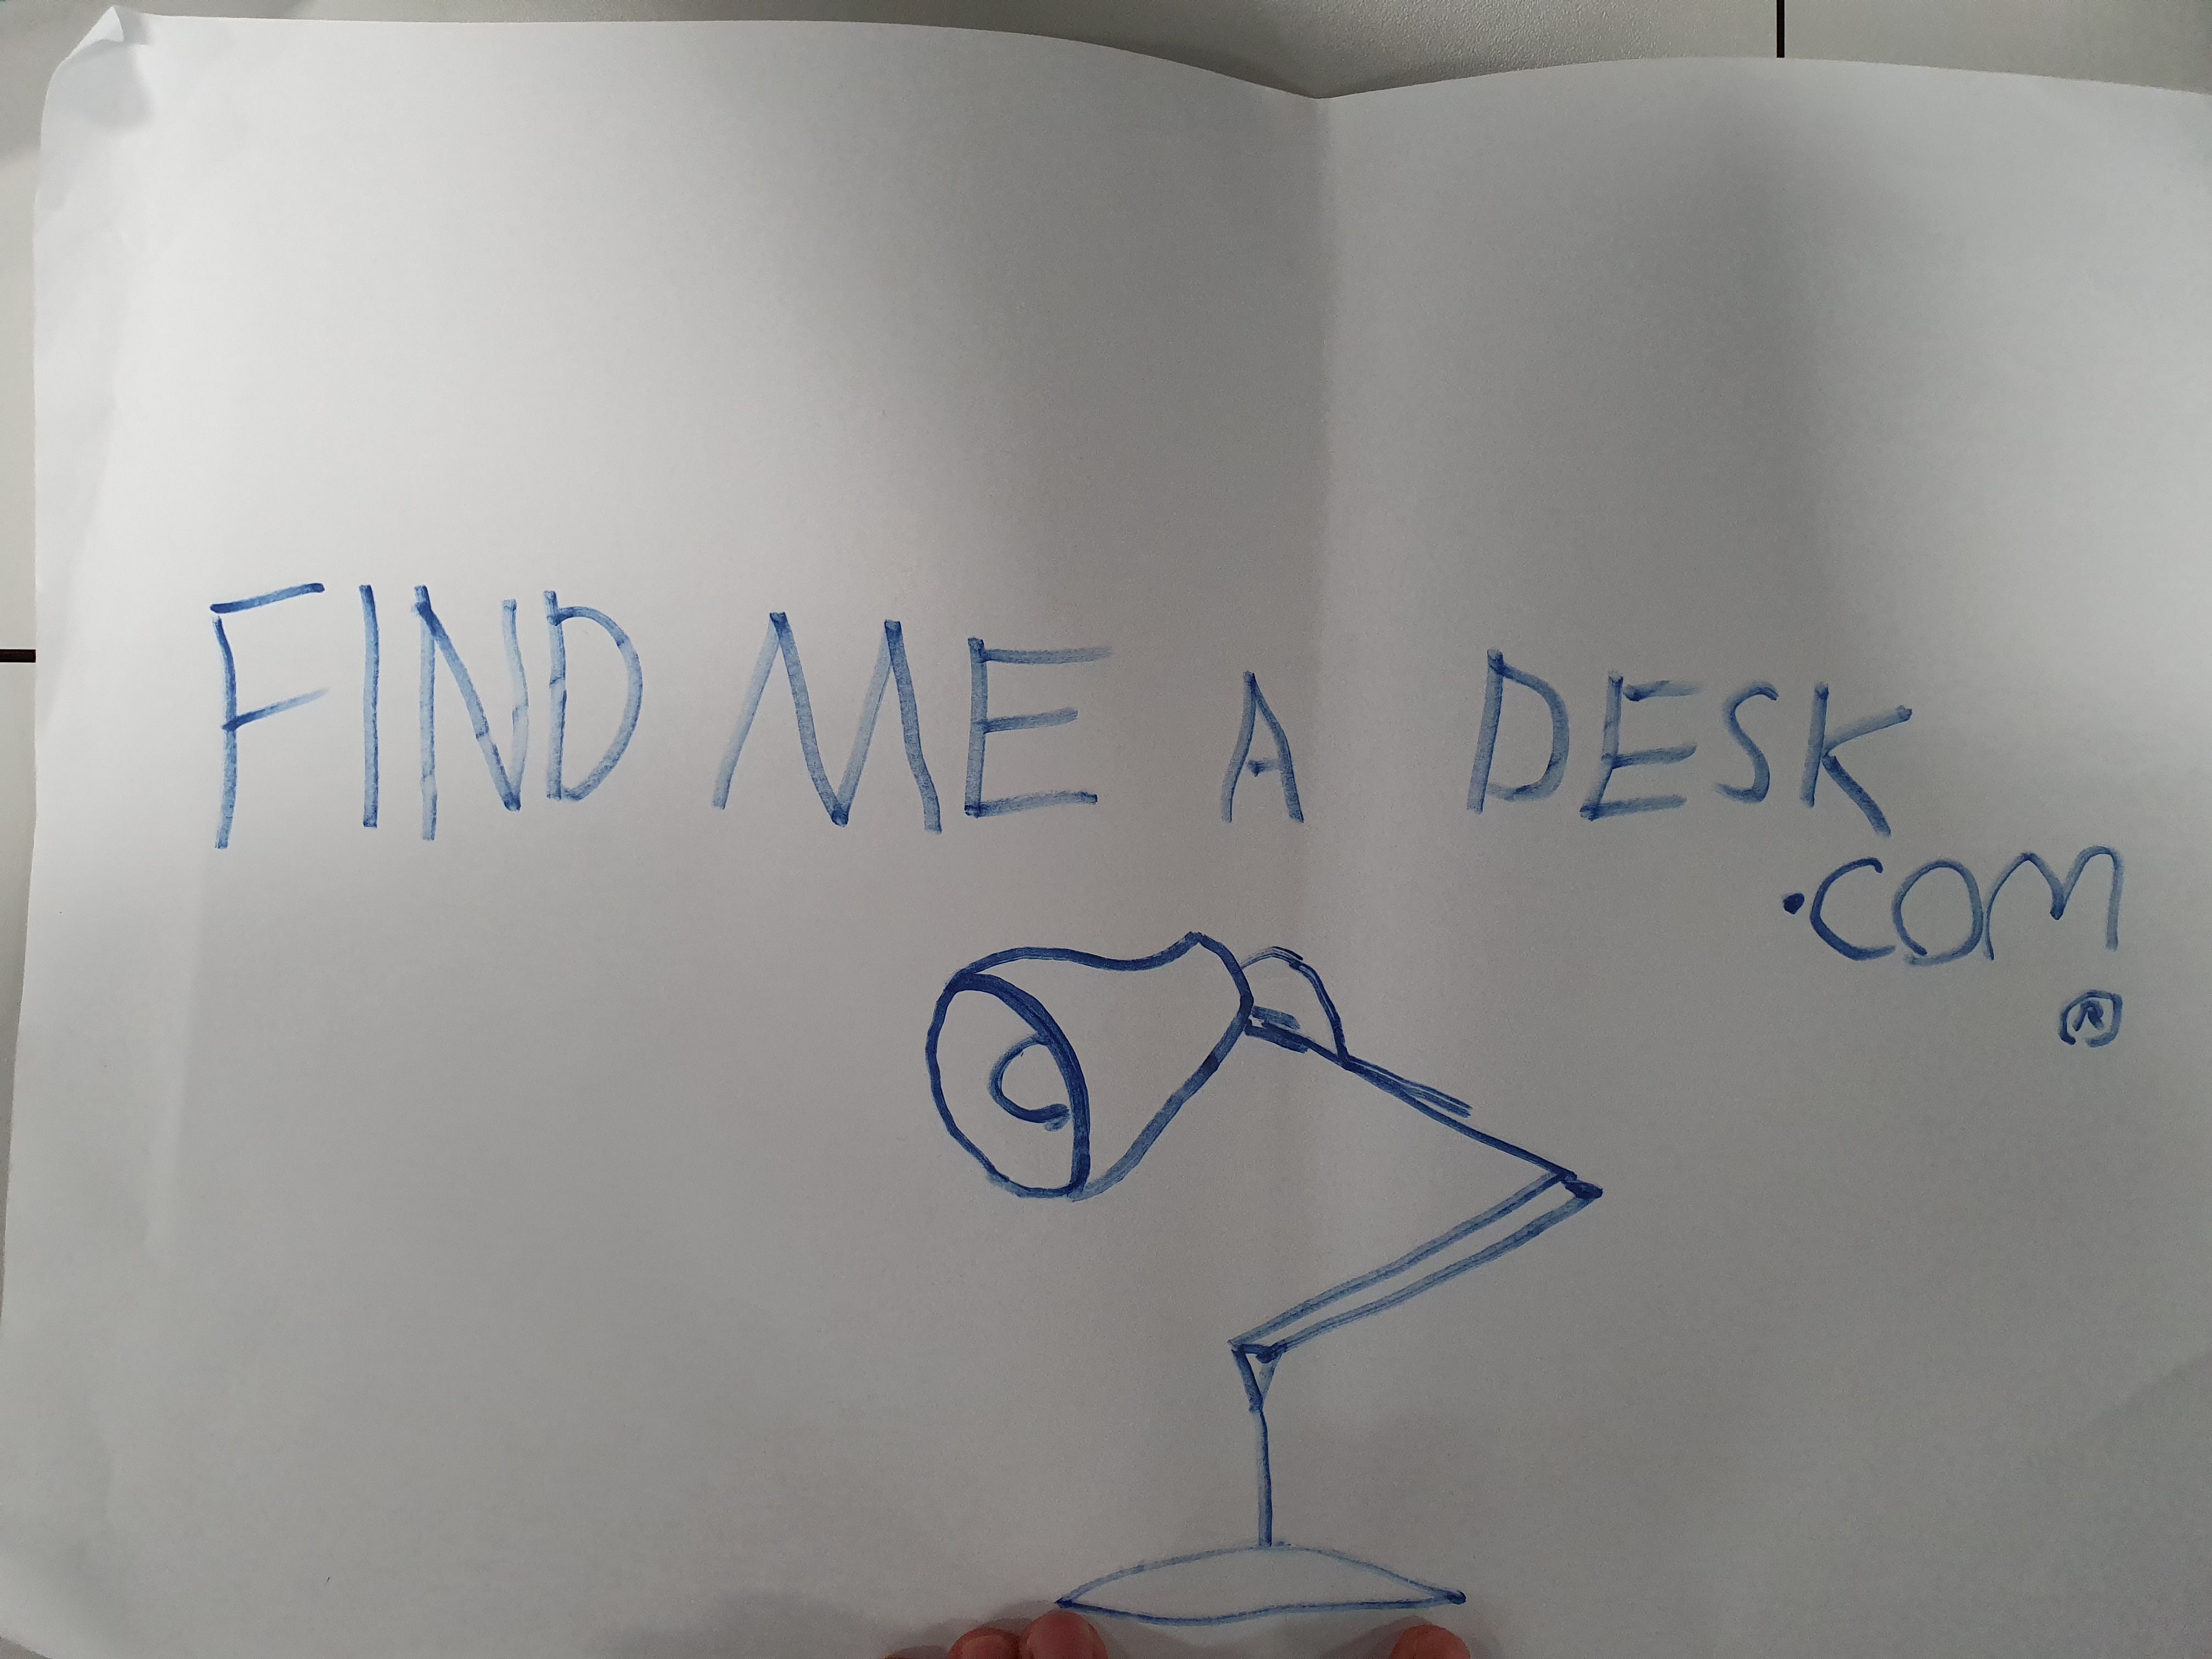 FIND ME A DESK
.com
®